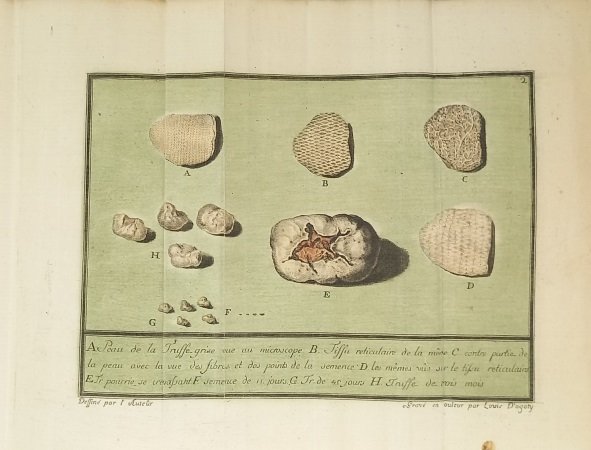 2.
A
B
C
H
E
D
G
F
A Peau de la Truffe grise vue au microscope. B. Tissu reticulaire de la même C contre partie de
la peau avec la vue des fibres et des points de la semence D les mêmes vûs sur le tissu reticulaire
E Tr. pourrie se crevassant F semence de 15 jours G Tr. de 45 jours H Truffe de trois mois
Dessiné par l'Auteur
Gravé en couleur par Louis D'agoty